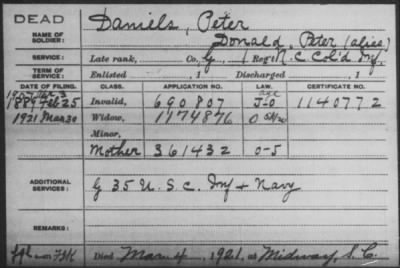 DEAD
NAME OF SOLDIER:
Daniels, Peter
Donald, Peter (alias)
SERVICE: Late rank, Co. G, 1 Reg't N.C. Col'd Inf.
TERM OF SERVICE: Enlisted , 1 Discharged , 1
DATE OF FILING. CLASS. APPLICATION NO. LAW. CERTIFICATE NO.
1889 Feb 25 Invalid, 690807 J-O 1140772
1921 Mar 30 Widow, 1174876 O
Minor,
Mother 361432 O-5
ADDITIONAL SERVICES: G 35 U.S.C. Inf + Navy
REMARKS:
Died Mar 4, 1921, at Midway, S.C.